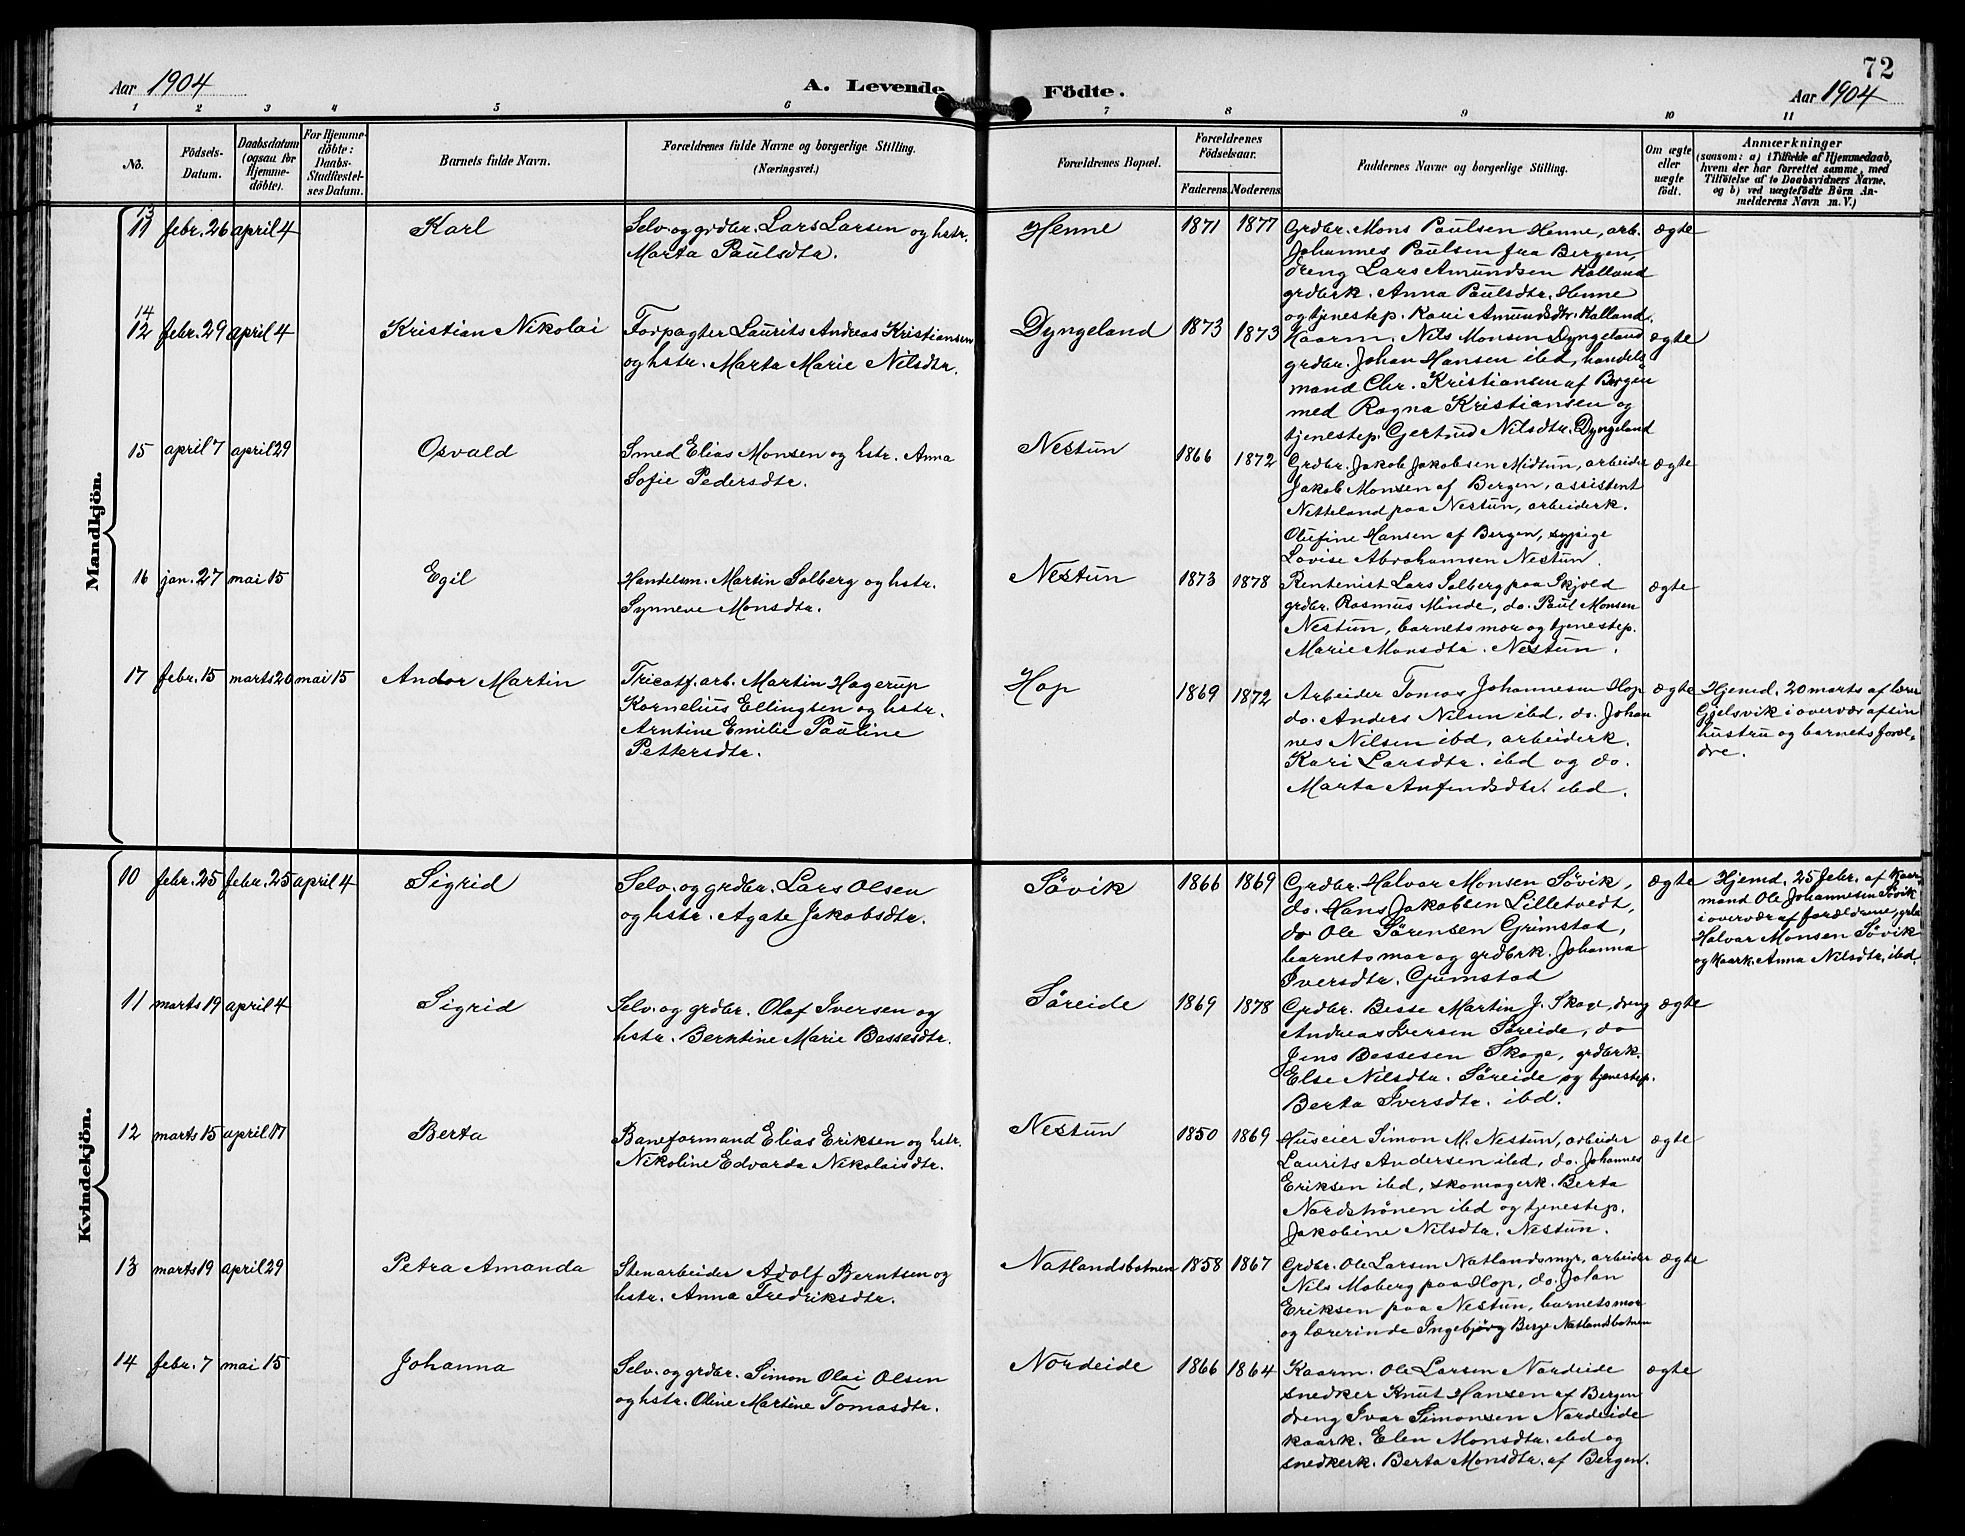 72
Aar 1904
A. Levende Födte.
Aar 1904
1 2 3 4 5 6 7 8 9 10 11
No.
Födsels-Datum.
Daabsdatum (ogsaa for Hjemme-döbte).
For Hjemme-döbte: Daabs-Stadfæstel-ses Datum.
Barnets fulde Navn.
Forældrenes fulde Navne og borgerlige Stilling.
(Næringsvei.)
Forældrenes Bopæl.
Forældrenes Födselsaar.
Faderens. Moderens.
Faddernes Navne og borgerlige Stilling.
Om ægte eller uægte födt.
Anmærkninger
(saasom: a) i Tilfælde af Hjemmedaab,
hvem der har forrettet samme, med
Tilföielse af to Daabsvidners Navne,
og b) ved uægtefödte Börn An-
melderens Navn m. V.)
Mandkjön.
13
11 febr. 26 april 4 Karl
Selv- og grdbr. Lars Larsen og hstr.
Marta Paulsdtr.
Henne 1871 1877
Grdbr. Mons Paulsen Henne, arb.
Johannes Paulsen fra Bergen,
dreng Lars Amundsen Kalland
grdbrk. Anna Paulsdtr. Henne
og tjenestep. Kari Amundsdtr. Kalland.
ægte
14
12 febr. 29 april 4 Kristian Nikolai
Forpagter Laurits Andreas Kristiansen
og hstr. Marta Marie Nilsdtr.
Dyngeland 1873 1873
Kaarm. Nils Monsen Dyngeland
grdbr. Johan Hansen ibd, handels
mand Chr. Kristiansen af Bergen
med Ragna Kristiansen og
tjenestep. Gertrud Nilsdtr. Dyngeland
ægte
15 april 7 april 29 Osvald
Smed Elias Monsen og hstr. Anna
Sofie Pedersdtr.
Nestun 1866 1872
Grdbr. Jakob Jakobsen Midtun, arbeider
Jakob Monsen af Bergen, assistent
Netteland paa Nestun, arbeiderk.
Olefine Hansen af Bergen, sypige
Lovise Abrahamsen Nestun.
ægte
16 jan. 27 mai 15 Egil
Handelsm. Martin Solberg og hstr.
Synneve Monsdtr.
Nestun 1873 1878
Rentenist Lars Solberg paa Skjold
grdbr. Rasmus Minde, do. Paul Monsen
Nestun, barnets mor og tjenestep.
Marie Monsdtr. Nestun.
ægte
17 febr. 15 marts 20 mai 15 Andor Martin
Tricotf. arb. Martin Hagerup
Kornelius Ellingsen og hstr.
Arntine Emilie Pauline
Pettersdtr.
Hop 1869 1872
Arbeider Tomas Johannesen Hop
do. Anders Nilsen ibd. do. Johan
nes Nilsen ibd, arbeiderk.
Kari Larsdtr. ibd og do.
Marta Anfindsdtr. ibd.
ægte
Hjemd. 20 marts af lærer
Gjelsvik i overvær af sin
hustru og barnets foræl-
dre.
Kvindekjön.
10 febr. 25 febr. 25 april 4 Sigrid
Selv- og grdbr. Lars Olsen
og hstr. Agate Jakobsdtr.
Søvik 1866 1869
Grdbr. Halvar Monsen Søvik,
do. Hans Jakobsen Lilletvedt,
do Ole Sørensen Grimstad,
barnets mor og grdbrk. Johanna
Iversdtr. Grimstad
ægte
Hjemd. 25 febr. af Kaar-
mand Ole Johannesen Søvik
i overvær af forældrene, grdbr
Halvar Monsen Søvik
og Kaark. Anna Nilsdtr. ibd.
11 marts 19 april 4 Sigrid
Selv- og grdbr. Olaf Iversen og
hstr. Berntine Marie Bessesdtr.
Søreide 1869 1878
Grdbr. Besse Martin J. Skage, dreng
Andreas Iversen Søreide, do
Jens Bessesen Skage, grdbrk.
Else Nilsdtr. Søreide og tjenestep.
Berta Iversdtr. ibd.
ægte
12 marts 15 april 17 Berta
Baneformand Elias Eriksen og hstr.
Nikoline Edvarda Nikolaisdtr.
Nestun 1850 1869
Huseier Simon M. Nestun, arbeider
Laurits Andersen ibd, do. Johannes
Eriksen ibd, skomagerk. Berta
Nordstrønen ibd og tjenestep.
Jakobine Nilsdtr. Nestun.
ægte
13 marts 19 april 29 Petra Amanda
Stenarbeider Adolf Berntsen og
hstr. Anna Fredriksdtr.
Natlandsbotnen 1858 1867
Grdbr. Ole Larsen Natlandsmyr, arbeider
Nils Moberg paa Hop, do. Johan
Eriksen paa Nestun, barnets mor
og lærerinde Ingebjørg Berge Natlandsbotnen
ægte
14 febr. 7 mai 15 Johanna
Selv- og grdbr. Simon Olai Olsen
og hstr. Oline Martine Tomasdtr.
Nordeide 1866 1864
Kaarm. Ole Larsen Nordeide
snedker Knut Hansen af Bergen
dreng Ivar Simonsen Nordeide
kaark. Elen Monsdtr. ibd og
snedkerk. Berta Monsdtr. af Bergen.
ægte